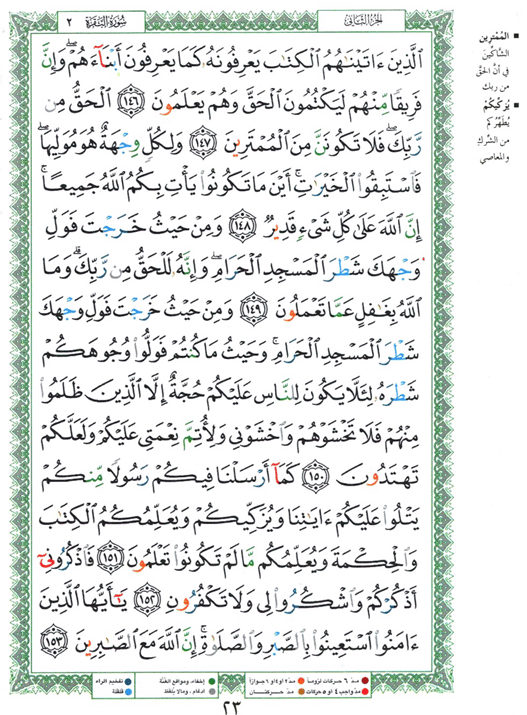 الجزء الثاني
سورة البقرة ٢
الَّذِينَ ءَاتَيْنَٰهُمُ الْكِتَٰبَ يَعْرِفُونَهُۥ كَمَا يَعْرِفُونَ أَبْنَآءَهُمْ ۖ وَإِنَّ
فَرِيقًا مِّنْهُمْ لَيَكْتُمُونَ الْحَقَّ وَهُمْ يَعْلَمُونَ ١٤٦ الْحَقُّ مِن
رَّبِّكَ ۖ فَلَا تَكُونَنَّ مِنَ الْمُمْتَرِينَ ١٤٧ وَلِكُلٍّ وِجْهَةٌ هُوَ مُوَلِّيهَا ۖ
فَاسْتَبِقُوا الْخَيْرَٰتِ ۚ أَيْنَ مَا تَكُونُوا يَأْتِ بِكُمُ اللَّهُ جَمِيعًا ۚ
إِنَّ اللَّهَ عَلَىٰ كُلِّ شَىْءٍ قَدِيرٌ ١٤٨ وَمِنْ حَيْثُ خَرَجْتَ فَوَلِّ
وَجْهَكَ شَطْرَ الْمَسْجِدِ الْحَرَامِ ۖ وَإِنَّهُۥ لَلْحَقُّ مِن رَّبِّكَ ۗ وَمَا
اللَّهُ بِغَٰفِلٍ عَمَّا تَعْمَلُونَ ١٤٩ وَمِنْ حَيْثُ خَرَجْتَ فَوَلِّ وَجْهَكَ
شَطْرَ الْمَسْجِدِ الْحَرَامِ ۚ وَحَيْثُ مَا كُنتُمْ فَوَلُّوا وُجُوهَكُمْ
شَطْرَهُۥ لِئَلَّا يَكُونَ لِلنَّاسِ عَلَيْكُمْ حُجَّةٌ إِلَّا الَّذِينَ ظَلَمُوا
مِنْهُمْ فَلَا تَخْشَوْهُمْ وَاخْشَوْنِى وَلِأُتِمَّ نِعْمَتِى عَلَيْكُمْ وَلَعَلَّكُمْ
تَهْتَدُونَ ١٥٠ كَمَآ أَرْسَلْنَا فِيكُمْ رَسُولًا مِّنكُمْ
يَتْلُوا عَلَيْكُمْ ءَايَٰتِنَا وَيُزَكِّيكُمْ وَيُعَلِّمُكُمُ الْكِتَٰبَ
وَالْحِكْمَةَ وَيُعَلِّمُكُم مَّا لَمْ تَكُونُوا تَعْلَمُونَ ١٥١ فَاذْكُرُونِىٓ
أَذْكُرْكُمْ وَاشْكُرُوا لِى وَلَا تَكْفُرُونِ ١٥٢ يَٰٓأَيُّهَا الَّذِينَ
ءَامَنُوا اسْتَعِينُوا بِالصَّبْرِ وَالصَّلَوٰةِ ۚ إِنَّ اللَّهَ مَعَ الصَّٰبِرِينَ ١٥٣
■ المُمْتَرِين
الشَّاكِّينَ
في أنَّ الحَقَّ
من ربك
■ يُزَكِّيكُمْ
يُطَهِّرُكم
من الشرك
والمعاصي
مدّ ٦ حركات لزوماً مدّ ٢ أو ٤ أو ٦ جوازاً إخفاء، ومواقع الغُنَّة تفخيم الراء
مدّ واجب ٤ أو ٥ حركات مدّ حركتان إدغام، ومالا يُلفظ قلقلة
٢٣